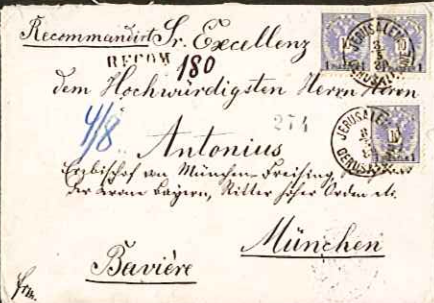 Recommandirt Sr. Excellenz
RECOM
180
dem Hochwürdigsten Herrn Herrn
4/8
274
Antonius
Erzbischof von München-Freising
der Krone Bayern, Ritter hoher Orden etc.
München
Bavière
JERUSALEM
10
1
1
JERUSALEM
10
1